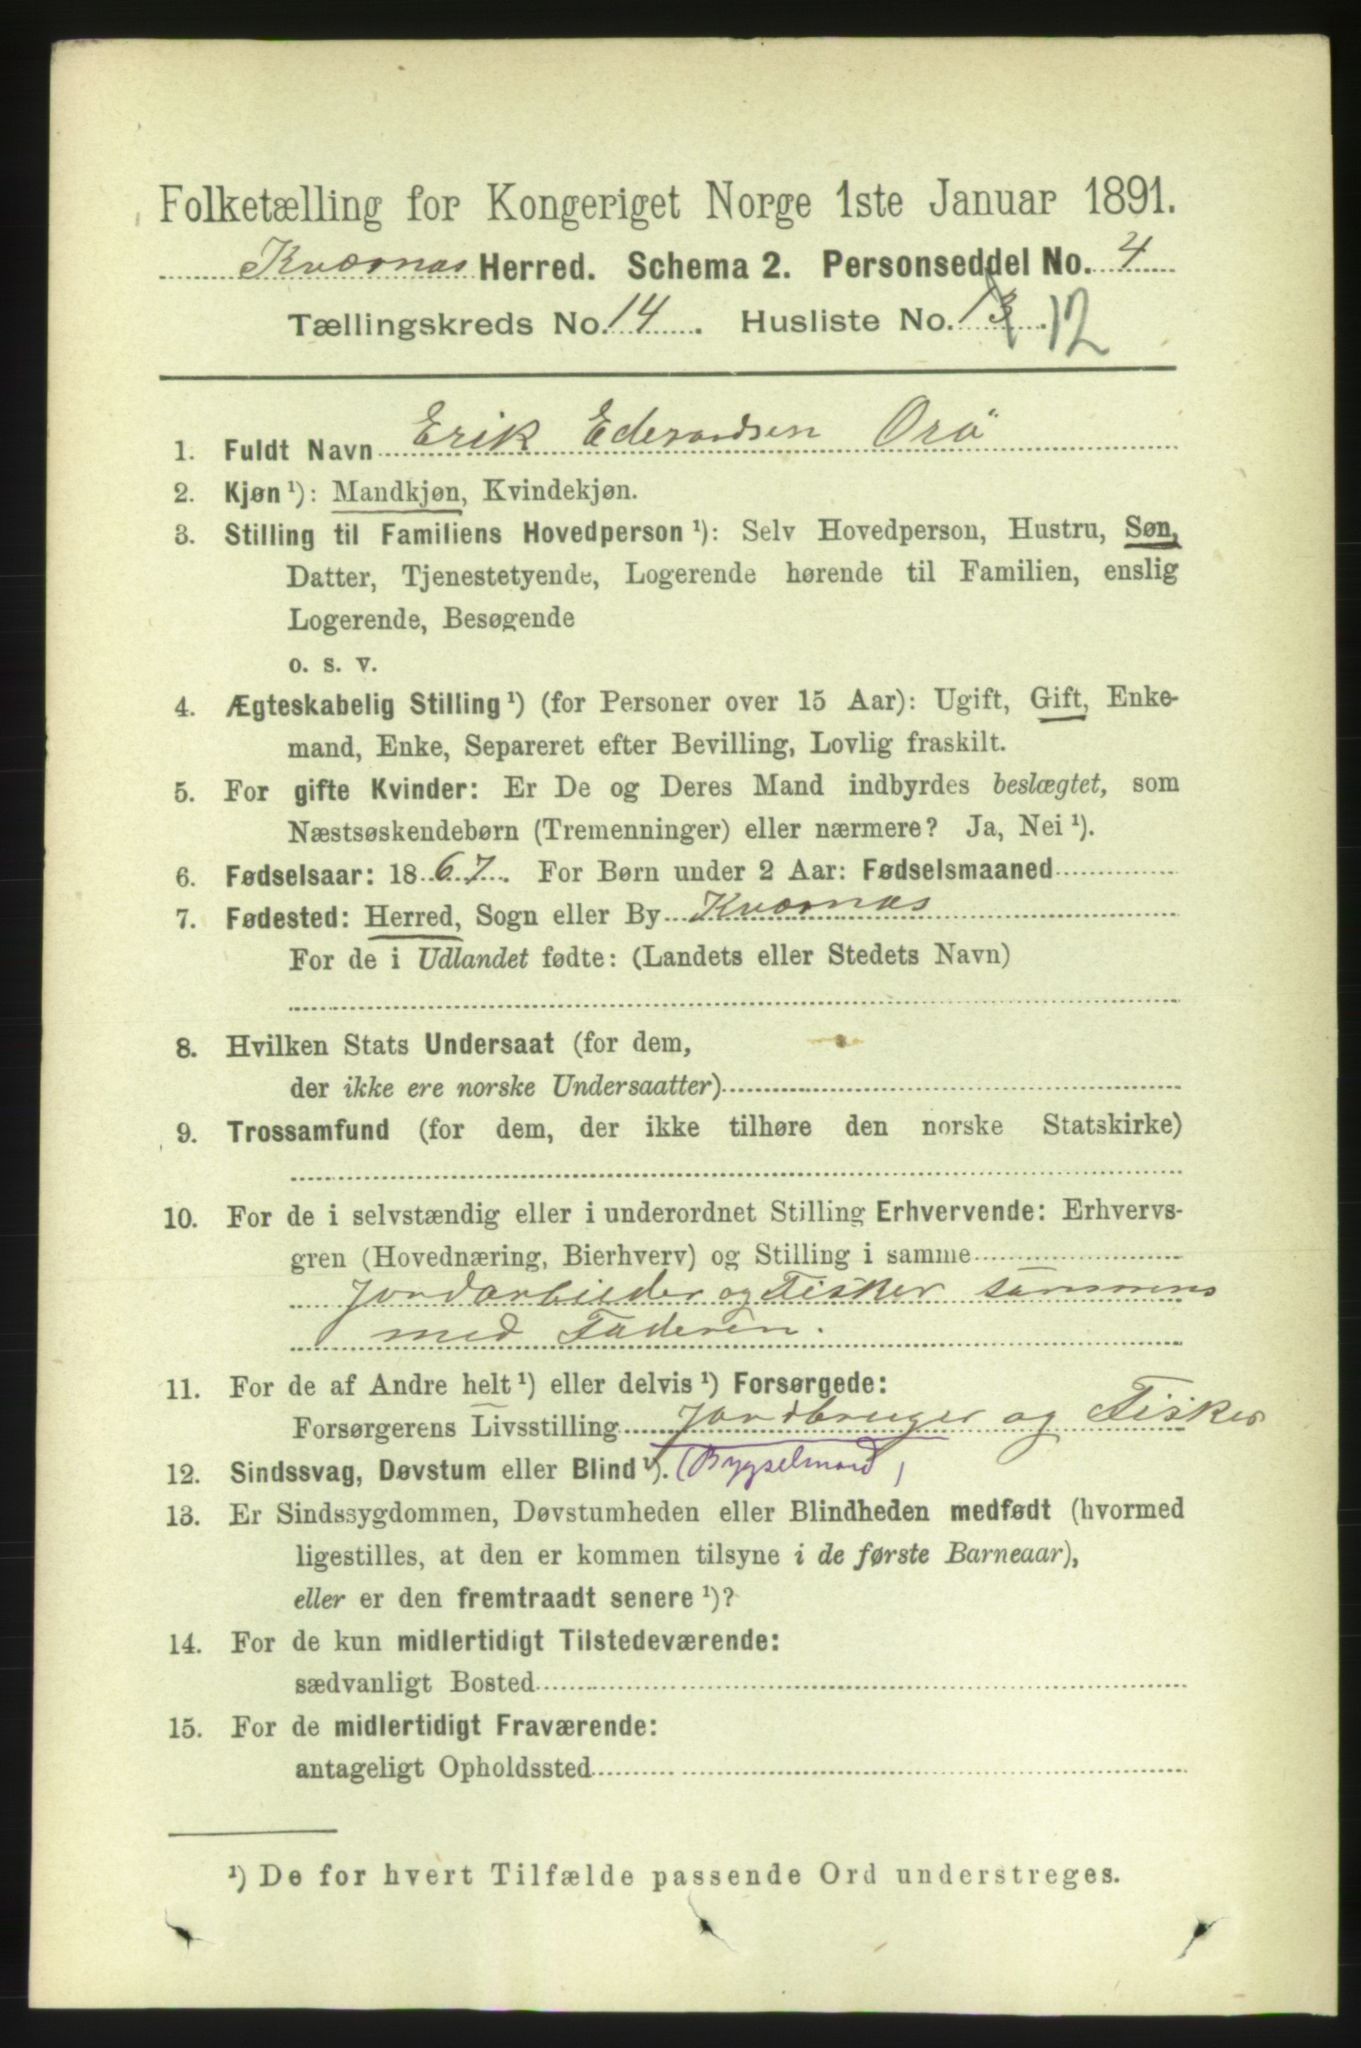 Folketælling for Kongeriget Norge 1ste Januar 1891.
Kværnas Herred. Schema 2. Personseddel No. 4
Tællingskreds No. 14. Husliste No. 13. 12
1. Fuldt Navn Erik Edvardsen Orö
2. Kjøn ¹): Mandkjøn, Kvindekjøn.
3. Stilling til Familiens Hovedperson ¹): Selv Hovedperson, Hustru, Søn,
Datter, Tjenestetyende, Logerende hørende til Familien, enslig
Logerende, Besøgende
o. s. v.
4. Ægteskabelig Stilling ¹) (for Personer over 15 Aar): Ugift, Gift, Enke-
mand, Enke, Separeret efter Bevilling, Lovlig fraskilt.
5. For gifte Kvinder: Er De og Deres Mand indbyrdes beslægtet, som
Næstsøskendebørn (Tremenninger) eller nærmere? Ja, Nei ¹).
6. Fødselsaar: 1867. For Børn under 2 Aar: Fødselsmaaned
7. Fødested: Herred, Sogn eller By Kværnas
For de i Udlandet fødte: (Landets eller Stedets Navn)
8. Hvilken Stats Undersaat (for dem,
der ikke ere norske Undersaatter)
9. Trossamfund (for dem, der ikke tilhøre den norske Statskirke)
10. For de i selvstændig eller i underordnet Stilling Erhvervende: Erhvervs-
gren (Hovednæring, Bierhverv) og Stilling i samme
Jordarbeider og Fisker sammens
med Faderen.
11. For de af Andre helt ¹) eller delvis ¹) Forsørgede:
Forsørgerens Livsstilling Jordbruger og Fisker
12. Sindssvag, Døvstum eller Blind ¹). (Bygselmand)
13. Er Sindssygdommen, Døvstumheden eller Blindheden medfødt (hvormed
ligestilles, at den er kommen tilsyne i de første Barneaar),
eller er den fremtraadt senere ¹)?
14. For de kun midlertidigt Tilstedeværende:
sædvanligt Bosted
15. For de midlertidigt Fraværende:
antageligt Opholdssted
¹) De for hvert Tilfælde passende Ord understreges.